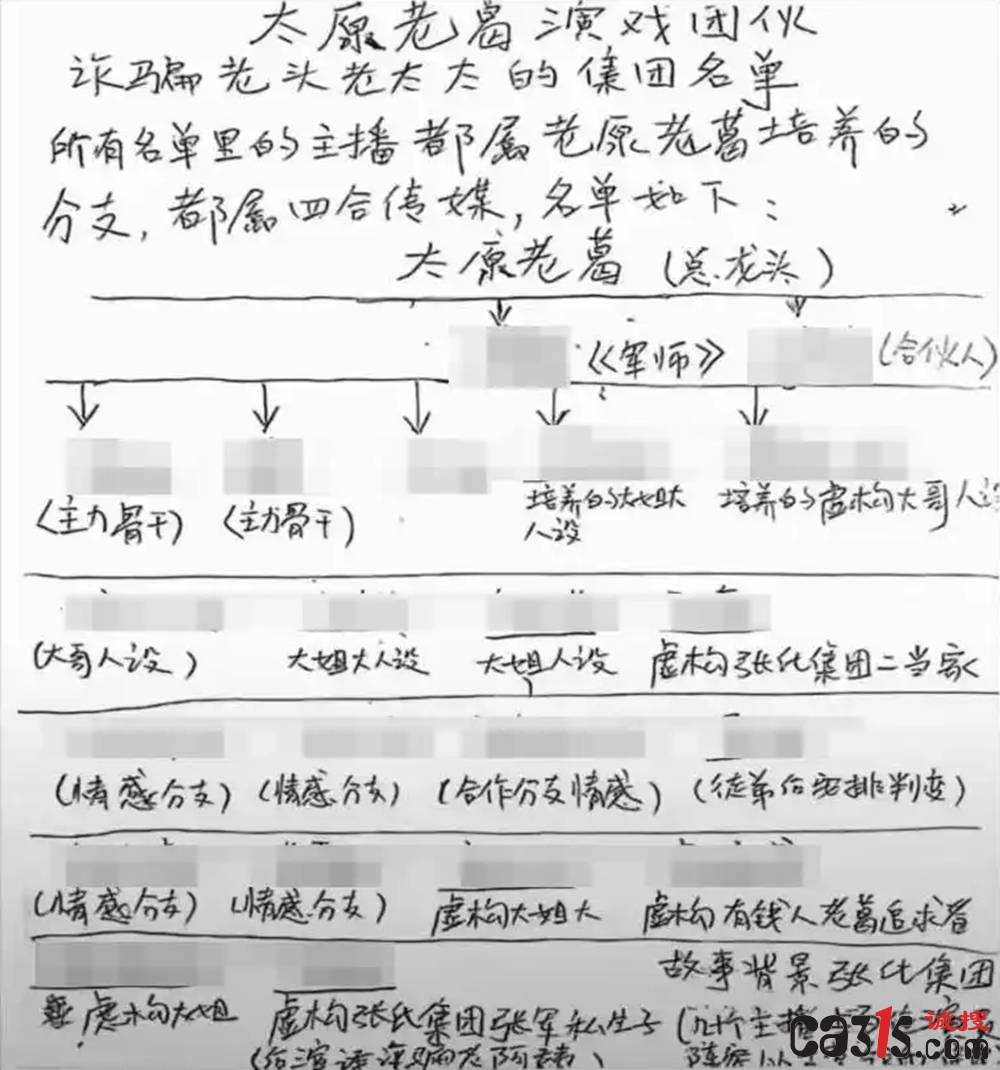 太原老葛演戏团伙
诈骗老头老太太的集团名单
所有名单里的主播都属老原老葛培养的
分支,都属四合传媒,名单如下:
太原老葛(总龙头)
《军师》 (合伙人)
(主力骨干) (主力骨干) 培养的大姐大人设 培养的虚构大哥人设
(大哥人设) 大姐大人设 大姐人设 虚构张氏集团二当家
(情感分支) (情感分支) (合作分支情感) (徒弟后安排判变)
(情感分支) (情感分支) 虚构大姐大 虚构有钱人老葛追求者
故事背景张氏集团
虚构大姐 虚构张氏集团张军私生子
诚搜
ca315.com